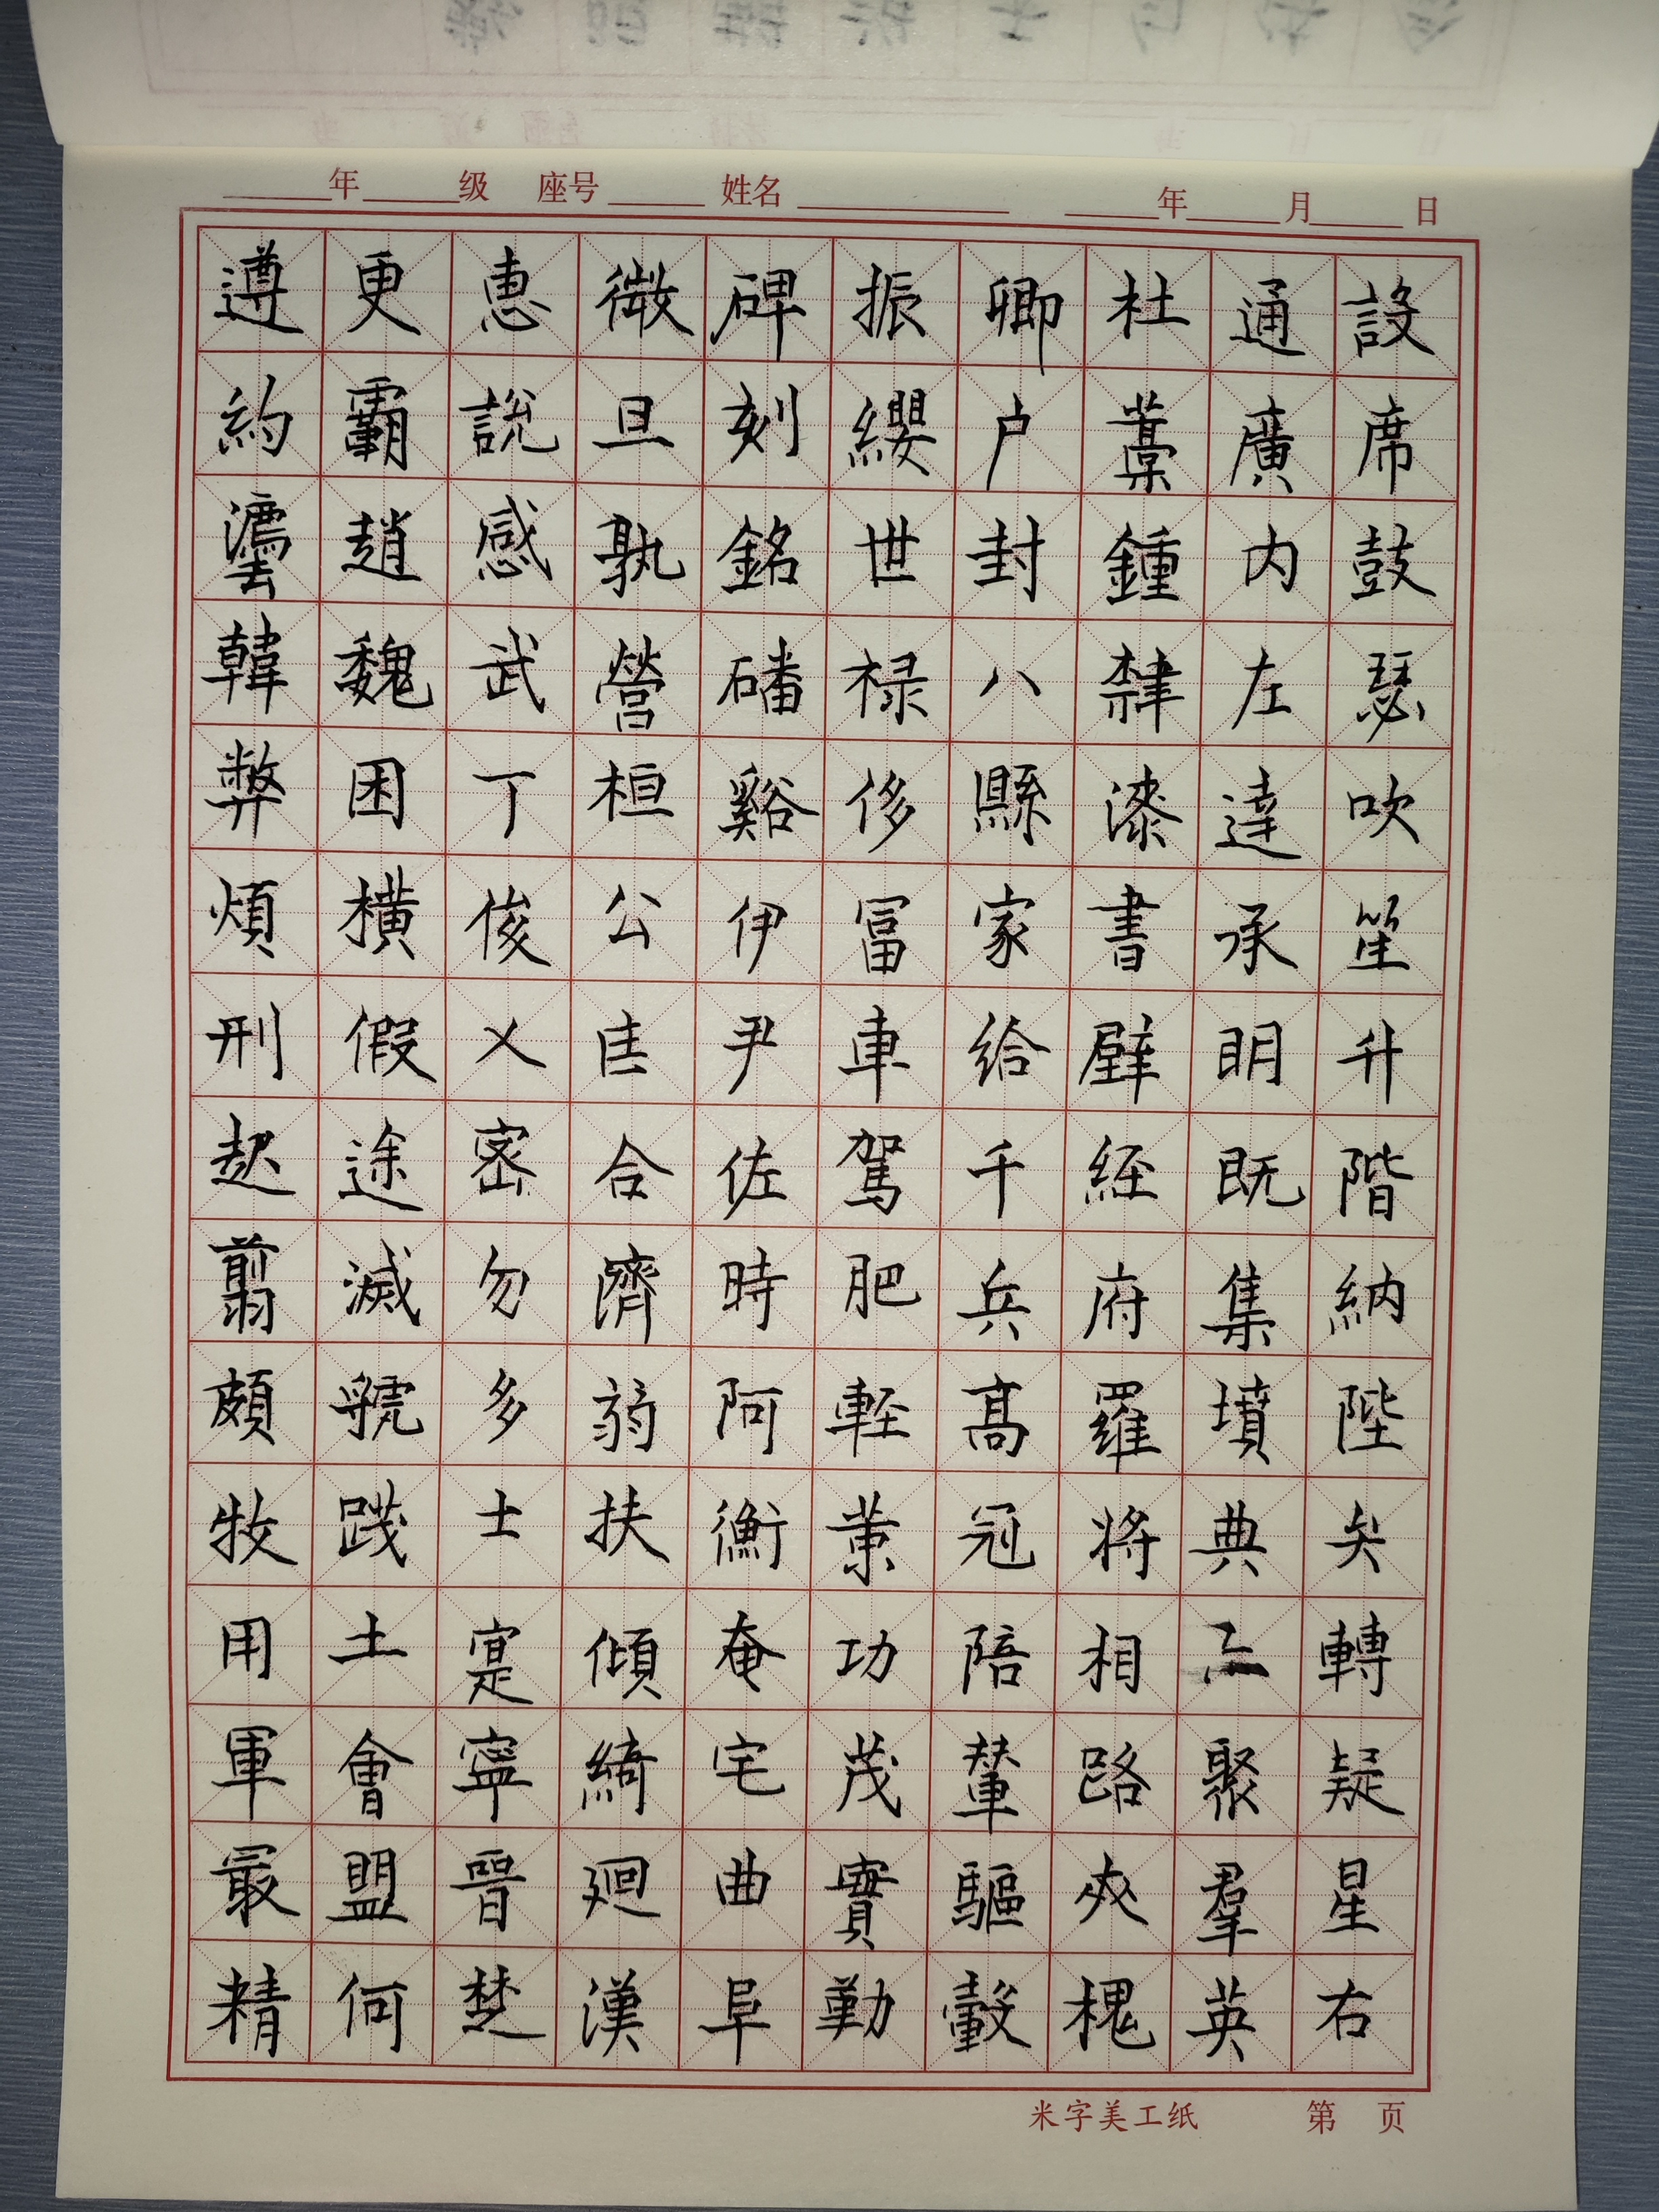 年 级 座号 姓名 年 月 日
設席鼓瑟吹笙升階納陛弁轉疑星右
通廣内左達承眀既集墳典亦聚羣英
杜藁鍾隸漆書壁経府羅将相路夾槐
卿户封八縣家給千兵髙冠陪輦驅轂
振纓世禄侈富車駕肥軽策功茂實勒
碑刻銘磻谿伊尹佐時阿衡奄宅曲阜
微旦孰營桓公匡合濟弱扶傾綺廻漢
惠說感武丁俊乂密勿多士寔寧晉楚
更霸趙魏困横假途滅虢踐土會盟何
遵約灋韓弊煩刑起翦頗牧用軍最精
米字美工纸 第 页